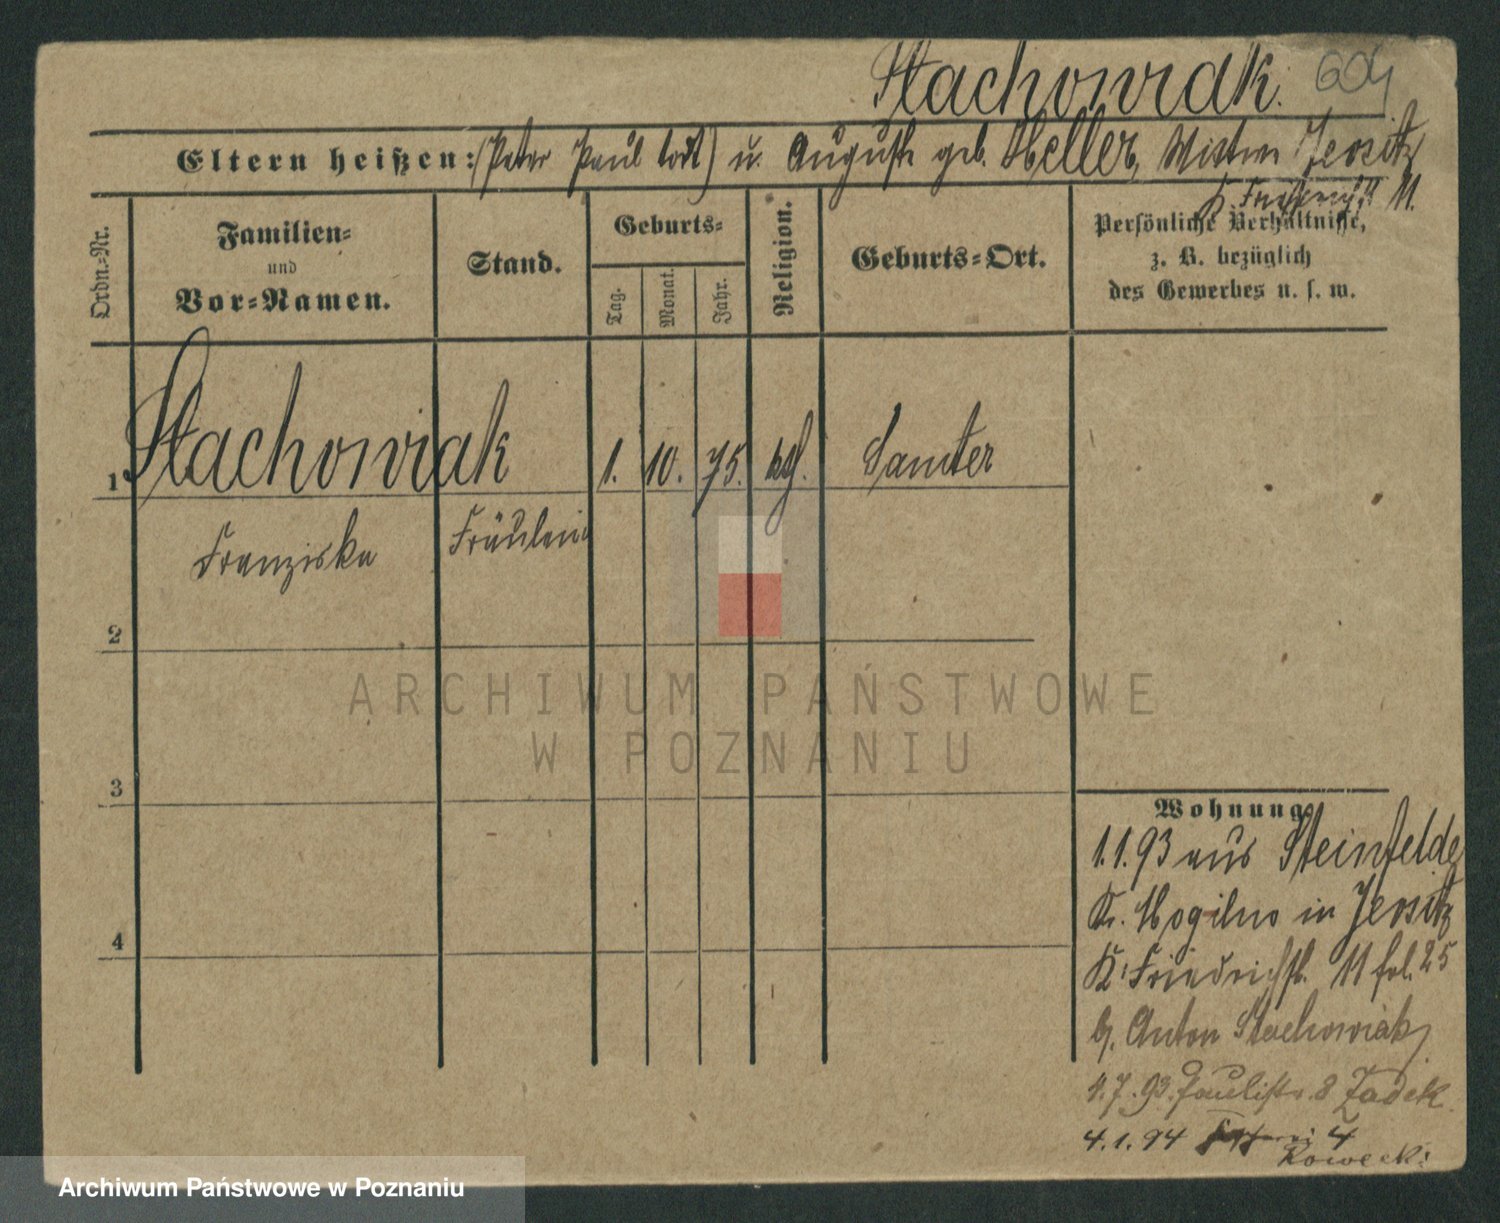 Stachowiak. 604
Eltern heißen: (Peter Paul todt) u. Auguste geb. Heller, Wittwe Jersitz
11.
Ordn.-Nr.
Familien-
und
Vor-Namen.
Stand.
Geburts-
Tag.
Monat.
Jahr.
Religion.
Geburts-Ort.
Persönliche Verhältnisse,
z. B. bezüglich
des Gewerbes u. s. w.
1 Stachowiak 1. 10. 75. ktl. Samter
Franziska Fräulein
2
3
4
Wohnung
1.1.93 aus Steinfelde
Kr. Mogilno in Jersitz
K. Friedrichstr. 11 fol. 25
b. Anton Stachowiak
1.7.93. Paulistr. 8 Zadek
4.1.94 4
Kowecki
ARCHIWUM PAŃSTWOWE
W POZNANIU
Archiwum Państwowe w Poznaniu